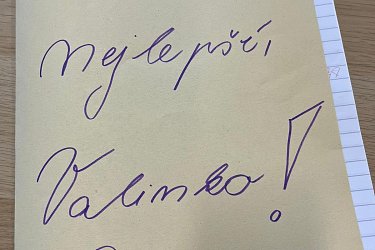 nejlepší,
Valinko!